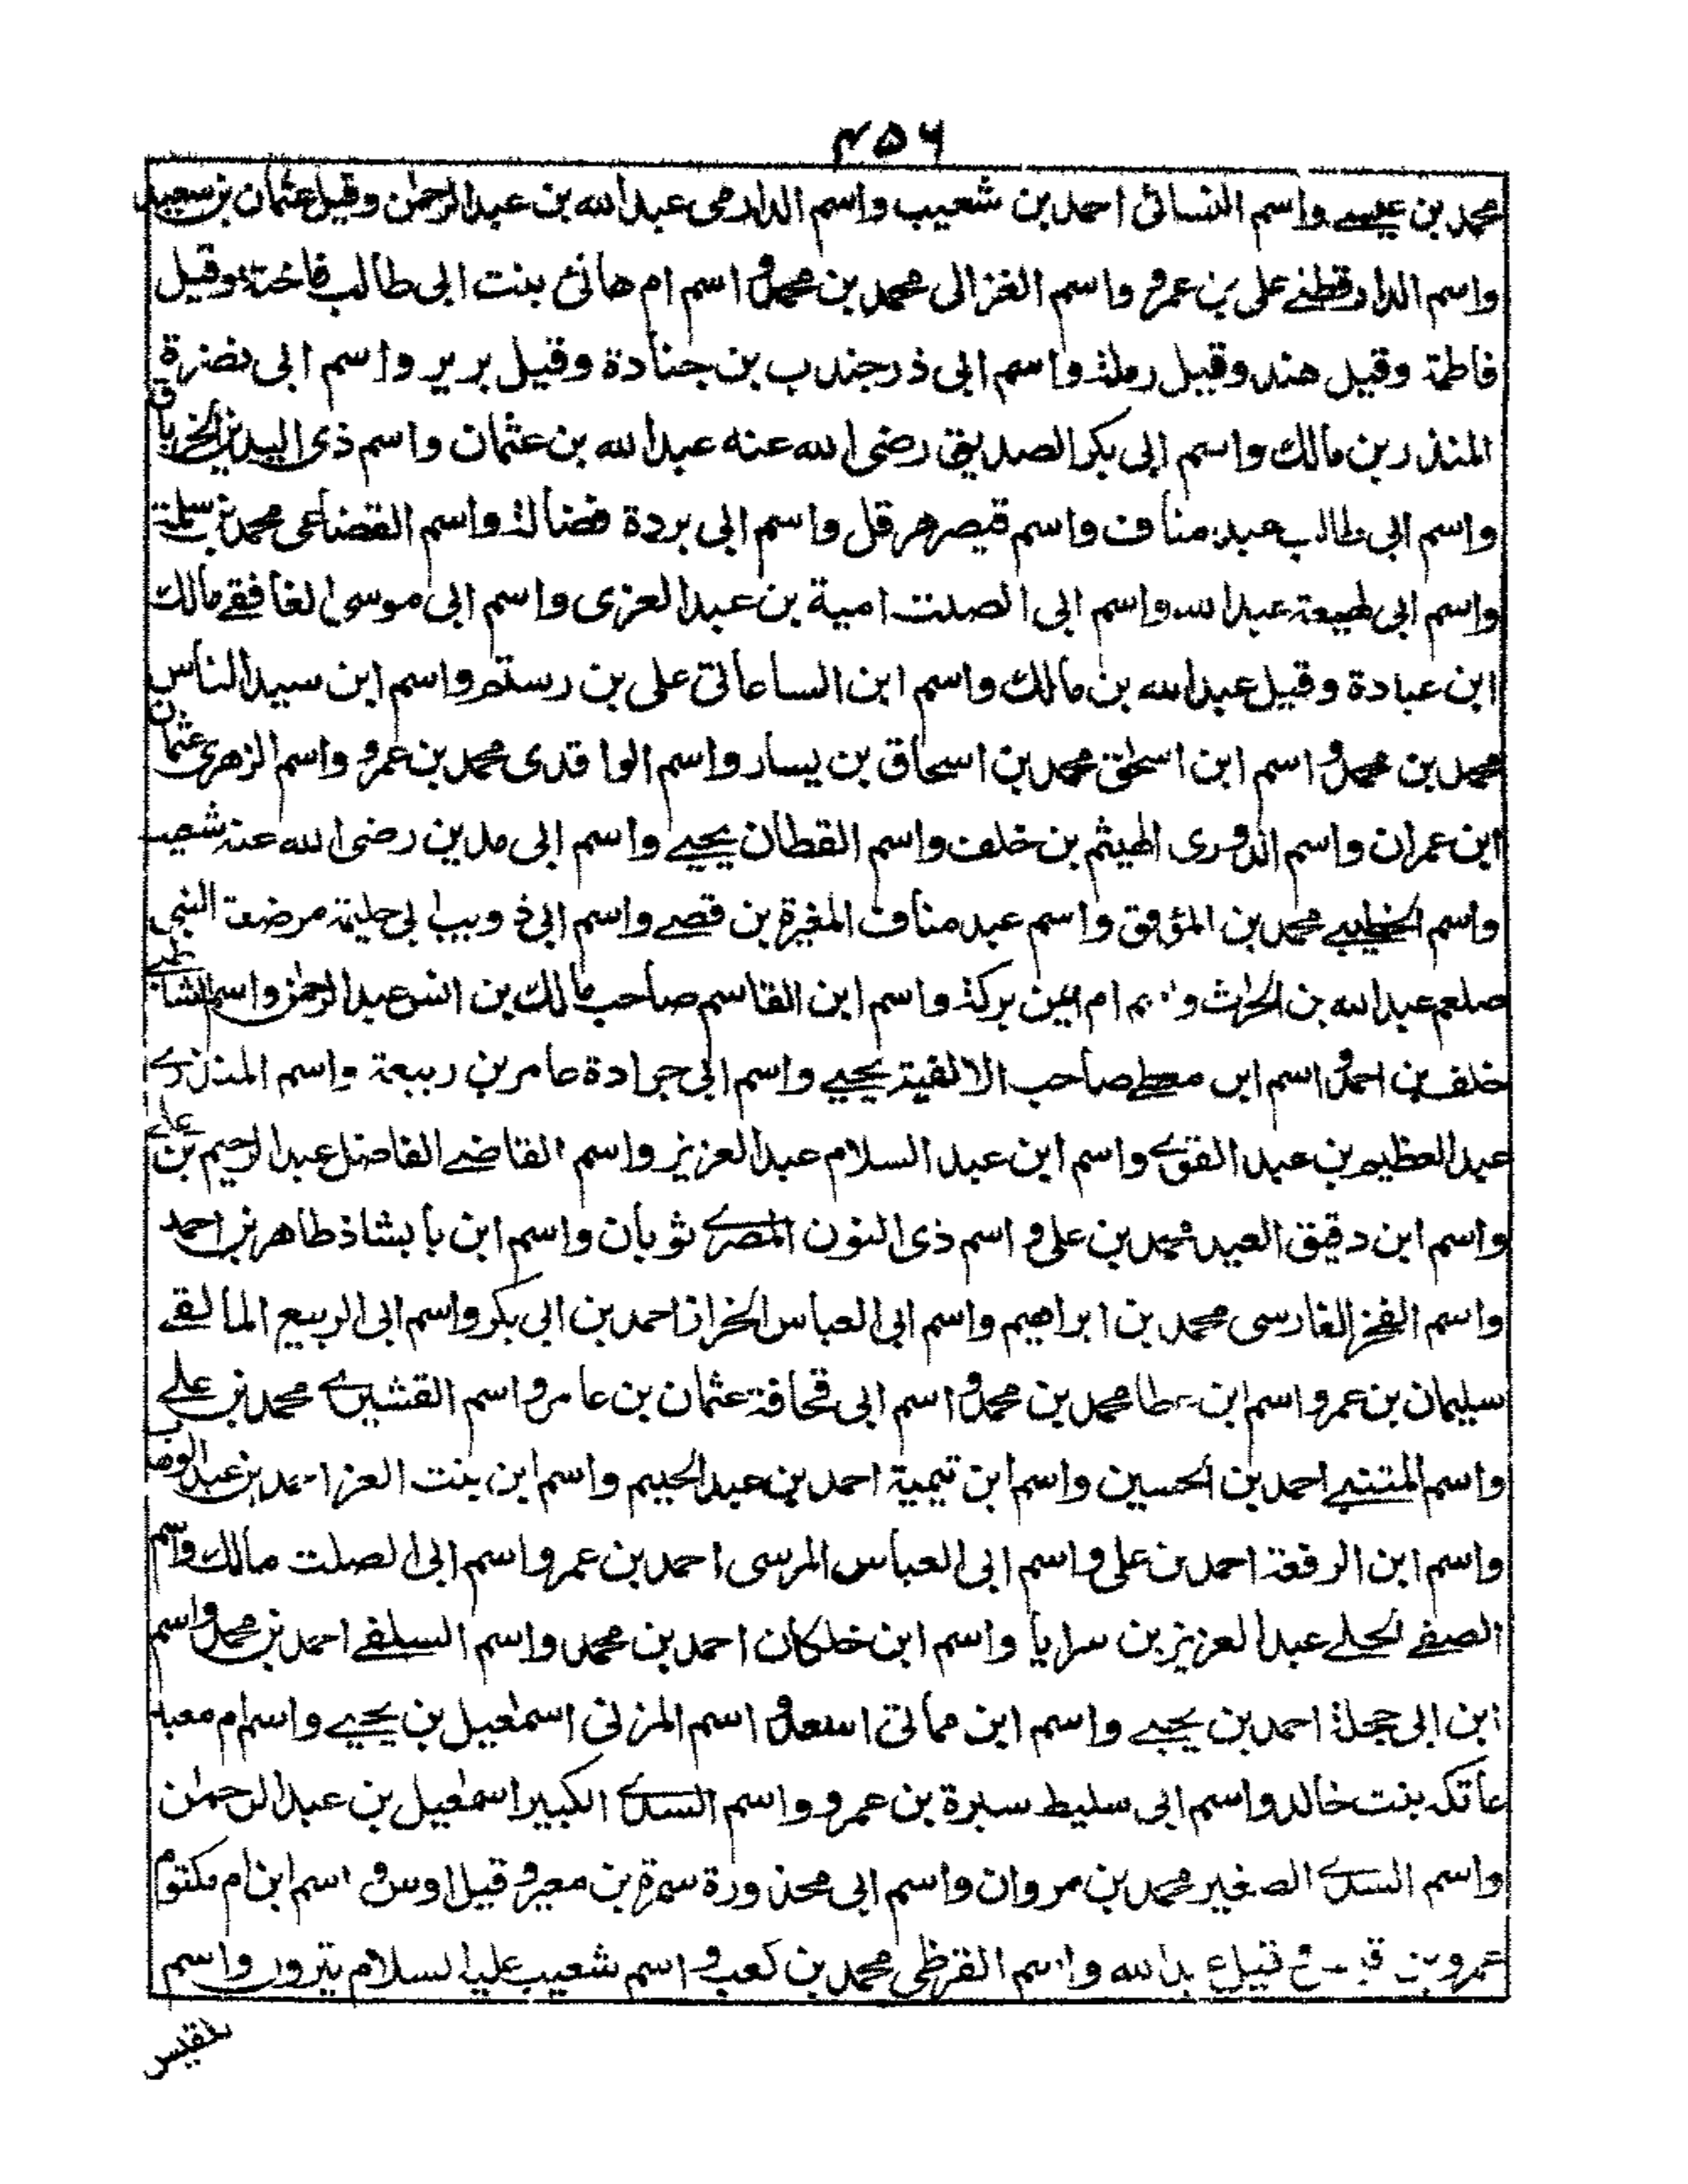 ۴۵۶
محمد بن عيسے واسم النسائى احمد بن شعيب واسم الدارمى عبد الله بن عبد الرحمٰن وقيل عثمان بن سعيد
واسم الدارقطنے على بن عمرو واسم الغزالى محمد بن محمد واسم ام هانئ بنت ابى طالب فاختة وقيل
فاطمة وقيل هند وقيل رملة واسم ابى ذر جندب بن جنادة وقيل برير واسم ابى نضرة
المنذر بن مالك واسم ابى بكر الصديق رضى الله عنه عبد الله بن عثمان واسم ذى اليدين الخرباق
واسم ابى طالب عبد مناف واسم قيصر هرقل واسم ابى بردة فضالة واسم القضاعى محمد بن سلمة
واسم ابى لهيعة عبد الله واسم ابى الصلت امية بن عبد العزى واسم ابى موسى الغافقے مالك
ابن عبادة وقيل عبد الله بن مالك واسم ابن الساعاتى على بن رستم واسم ابن سيد الناس
محمد بن محمد واسم ابن اسحٰق محمد بن اسحاق بن يسار واسم الواقدى محمد بن عمرو واسم الزهرى عثمان
ابن عمران واسم الدورى الهيثم بن خلف واسم القطان يحيے واسم ابى مدين رضى الله عنه شعيب
واسم الخطيبے محمد بن المؤفق واسم عبد مناف المغيرة بن قصے واسم ابى ذويب ابى حليمة مرضعة النبى
صلعم عبد الله بن الحٰرث واسم ام ايمن بركة واسم ابن القاسم صاحب مالك بن انس عبد الرحمٰن واسم الشاطبے
خلف بن احمد واسم ابن معطے صاحب الالفية يحيے واسم ابى جرادة عامر بن ربيعة واسم المنذرے
عبد العظيم بن عبد القوے واسم ابن عبد السلام عبد العزيز واسم القاضے الفاضل عبد الرحيم بن علے
واسم ابن دقيق العيد محمد بن على واسم ذى النون المصرے ثوبان واسم ابن بابشاذ طاهر بن احمد
واسم الفخر الفارسى محمد بن ابراهيم واسم ابى العباس الخراز احمد بن ابى بكر واسم ابى الربيع المالقے
سليمان بن عمر واسم ابن عطا محمد بن محمد واسم ابى قحافة عثمان بن عامر واسم القشيرے محمد بن علے
واسم المتنبے احمد بن الحسين واسم ابن تيمية احمد بن عبد الحليم واسم ابن بنت العز احمد بن عبد الوهاب
واسم ابن الرفعة احمد بن على واسم ابى العباس المرسى احمد بن عمر واسم ابى الصلت مالك واسم
الصفے الحلے عبد العزيز بن سرايا واسم ابن خلكان احمد بن محمد واسم السلفے احمد بن محمد واسم
ابن ابى حجلة احمد بن يحيے واسم ابن مماتى اسعد واسم المزنى اسمٰعيل بن يحيے واسم ام معبد
عاتكه بنت خالد واسم ابى سليط سبرة بن عمرو واسم السدے الكبير اسمٰعيل بن عبد الرحمٰن
واسم السدے الصغير محمد بن مروان واسم ابى محذورة سمرة بن معير وقيل اوس واسم ابن ام مكتوم
عمرو بن وقيل عبد الله واسم القرظى محمد بن كعب واسم شعيب عليه السلام يترون واسم
بلقيس